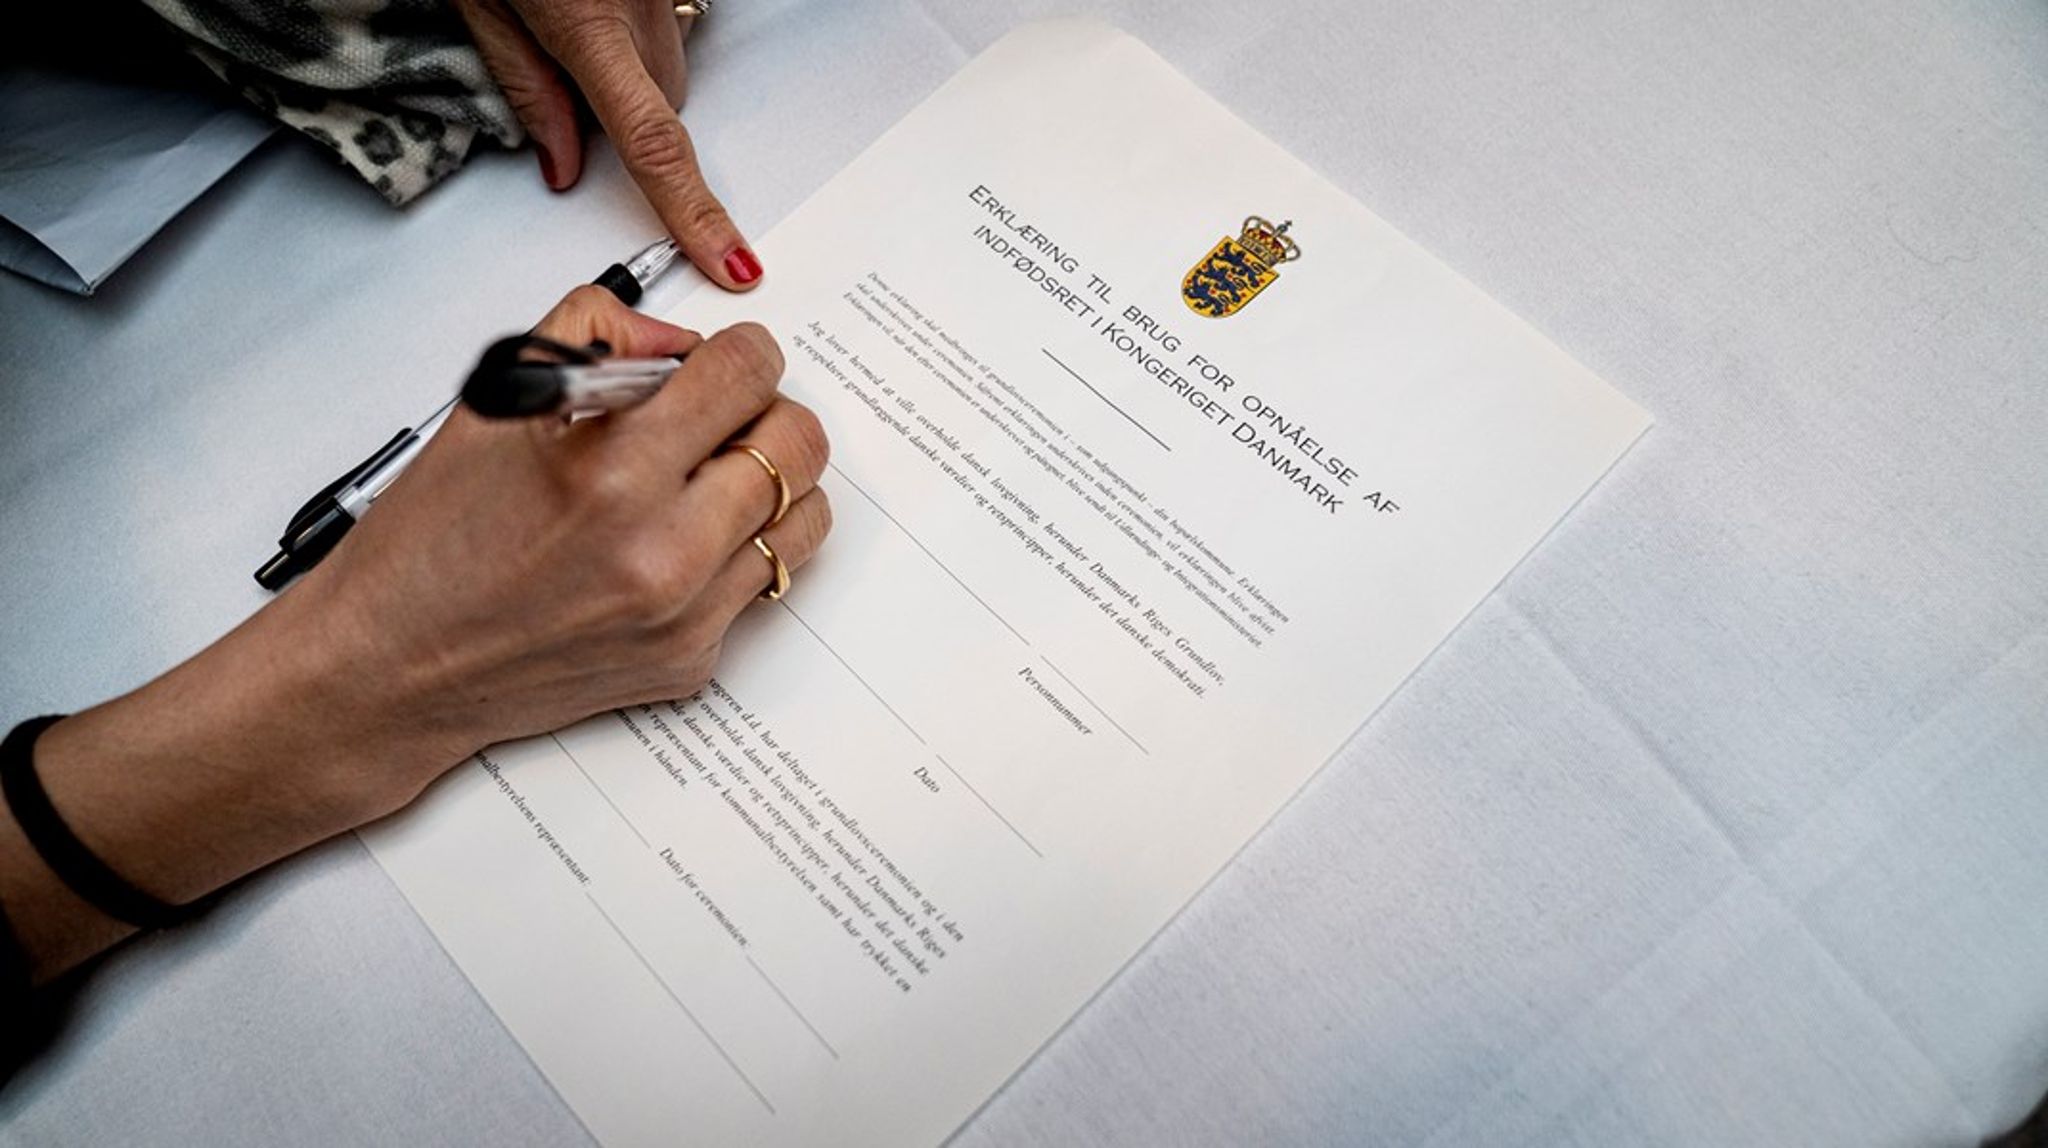 ERKLÆRING TIL BRUG FOR OPNÅELSE AF
INDFØDSRET I KONGERIGET DANMARK
Denne erklæring skal medbringes til grundlovsceremonien i – som udgangspunkt – din bopælskommune. Erklæringen
skal underskrives under ceremonien. Såfremt erklæringen underskrives inden ceremonien, vil erklæringen blive afvist.
Erklæringen vil, når den efter ceremonien er underskrevet og påtegnet, blive sendt til Udlændinge- og Integrationsministeriet.
Jeg lover hermed at ville overholde dansk lovgivning, herunder Danmarks Riges Grundlov,
og respektere grundlæggende danske værdier og retsprincipper, herunder det danske demokrati.
Personnummer
Dato
øgeren d.d. har deltaget i grundlovsceremonien og i den
overholde dansk lovgivning, herunder Danmarks Riges
de danske værdier og retsprincipper, herunder det danske
n repræsentant for kommunalbestyrelsen samt har trykket en
mmunen i hånden.
Dato for ceremonien:
nalbestyrelsens repræsentant: